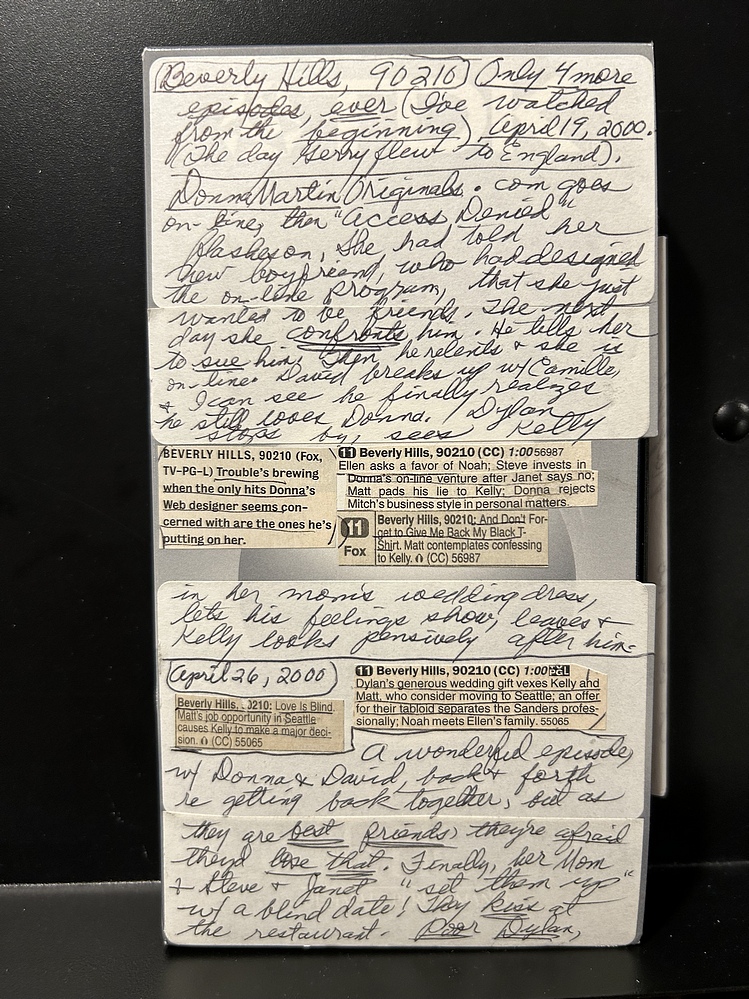 Beverly Hills, 90210 Only 4 more
episodes, ever (I've watched
from the beginning) April 19, 2000.
(The day Gerry flew to England).
DonnaMartinOriginals.com goes
on-line, then "Access Denied"
flashes on, She had told her
new boyfriend, who had designed
the on-line program, that she just
wanted to be friends. The next
day she confronts him. He tells her
to sue him. Then he relents & she is
on-line. David breaks up w/ Camille,
& I can see he finally realizes
he still loves Donna. Dylan
stops by, sees Kelly
BEVERLY HILLS, 90210 (Fox,
TV-PG-L) Trouble's brewing
when the only hits Donna's
Web designer seems con-
cerned with are the ones he's
putting on her.
11 Beverly Hills, 90210 (CC) 1:00 56987
Ellen asks a favor of Noah; Steve invests in
Donna's on-line venture after Janet says no;
Matt pads his lie to Kelly; Donna rejects
Mitch's business style in personal matters.
11
Fox
Beverly Hills, 90210: And Don't For-
get to Give Me Back My Black T-
Shirt. Matt contemplates confessing
to Kelly. (CC) 56987
in her mom's wedding dress,
lets his feelings show, leaves &
Kelly looks pensively after him.
April 26, 2000
11 Beverly Hills, 90210 (CC) 1:00
Dylan's generous wedding gift vexes Kelly and
Matt, who consider moving to Seattle; an offer
for their tabloid separates the Sanders profes-
sionally; Noah meets Ellen's family. 55065
Beverly Hills, 90210: Love Is Blind.
Matt's job opportunity in Seattle
causes Kelly to make a major deci-
sion. (CC) 55065
A wonderful episode,
w/ Donna & David, back & forth
re getting back together, but as
they are best friends, they're afraid
they'd lose that. Finally, her Mom
& Steve & Janet "set them up"
w/ a blind date! They kiss at
the restaurant. Poor Dylan,